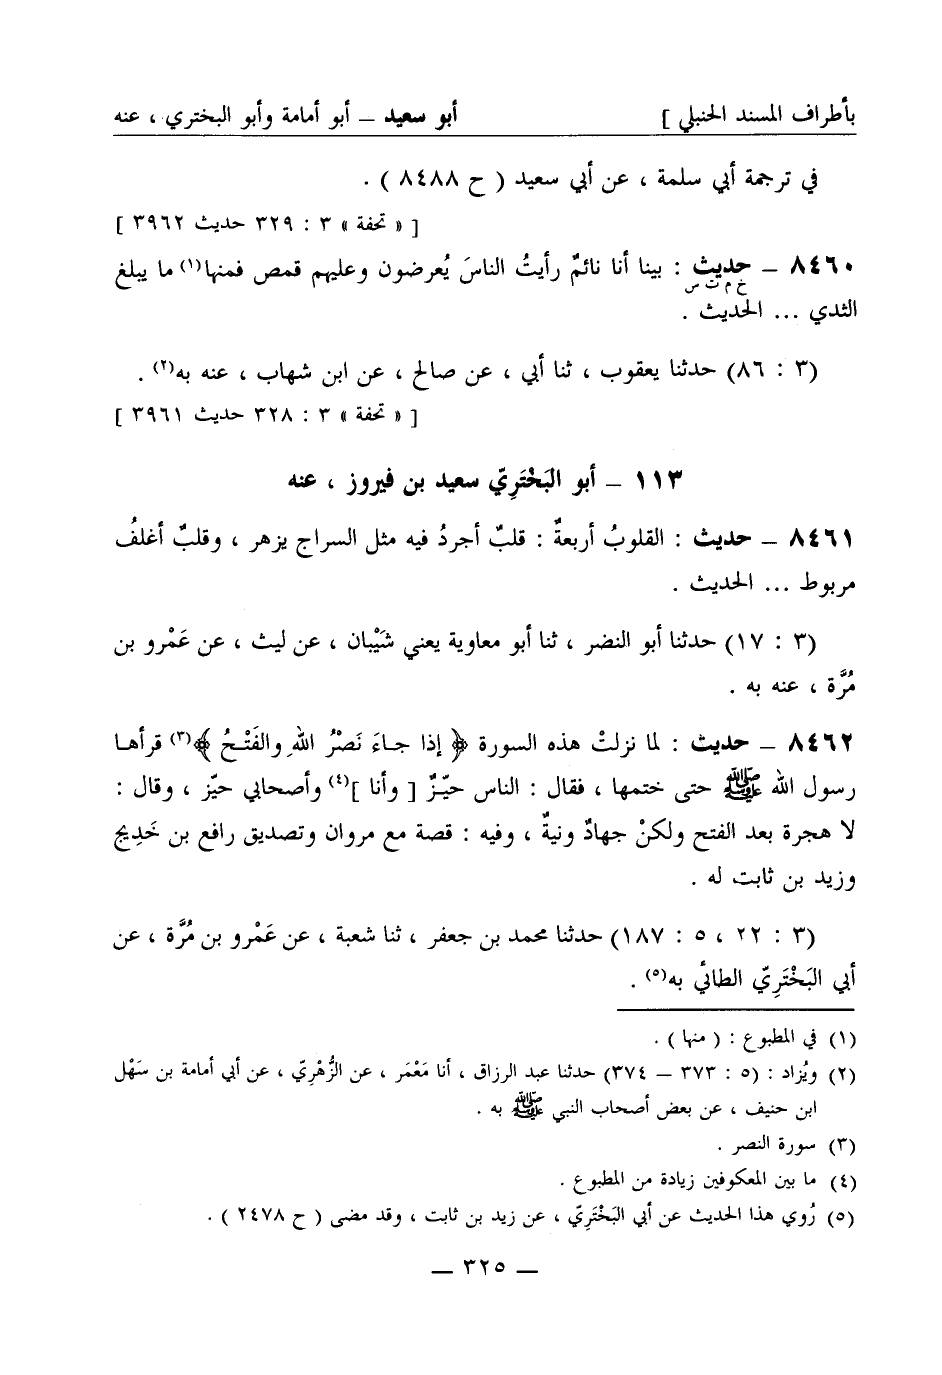 بأطراف المسند الحنبلي ] أبو سعيد – أبو أمامة وأبو البختري ، عنه
في ترجمة أبي سلمة ، عن أبي سعيد ( ح ٨٤٨٨ ) .
[ « تحفة » ٣ : ٣٢٩ حديث ٣٩٦٢ ]
٨٤٦٠ – حديث : بينا أنا نائمٌ رأيتُ الناسَ يُعرضون وعليهم قمص فمنها(١) ما يبلغ
خ م ت س
الثدي ... الحديث .
(٣ : ٨٦) حدثنا يعقوب ، ثنا أبي ، عن صالح ، عن ابن شهاب ، عنه به(٢) .
[ « تحفة » ٣ : ٣٢٨ حديث ٣٩٦١ ]
١١٣ – أبو البَخْتَرِيّ سعيد بن فيروز ، عنه
٨٤٦١ – حديث : القلوبُ أربعةٌ : قلبٌ أجردُ فيه مثل السراج يزهر ، وقلبٌ أغلفُ
مربوط ... الحديث .
(٣ : ١٧) حدثنا أبو النضر ، ثنا أبو معاوية يعني شَيْبان ، عن ليث ، عن عَمْرو بن
مُرَّة ، عنه به .
٨٤٦٢ – حديث : لما نزلتْ هذه السورة ﴿ إذا جاءَ نَصْرُ اللهِ والفَتْحُ ﴾(٣) قرأها
رسول الله ﷺ حتى ختمها ، فقال : الناس حيّزٌ [ وأنا ](٤) وأصحابي حيّز ، وقال :
لا هجرة بعد الفتح ولكنْ جهادٌ ونيةٌ ، وفيه : قصة مع مروان وتصديق رافع بن خَدِيج
وزيد بن ثابت له .
(٣ : ٢٢ ، ٥ : ١٨٧) حدثنا محمد بن جعفر ، ثنا شعبة ، عن عَمْرو بن مُرَّة ، عن
أبي البَخْتَرِيّ الطائي به(٥) .
(١) في المطبوع : ( منها ) .
(٢) ويُزاد : (٥ : ٣٧٣ – ٣٧٤) حدثنا عبد الرزاق ، أنا مَعْمَر ، عن الزُّهْرِيّ ، عن أبي أمامة بن سَهْل
ابن حنيف ، عن بعض أصحاب النبي ﷺ به .
(٣) سورة النصر .
(٤) ما بين المعكوفين زيادة من المطبوع .
(٥) رُوي هذا الحديث عن أبي البَخْتَرِيّ ، عن زيد بن ثابت ، وقد مضى ( ح ٢٤٧٨ ) .
– ٣٢٥ –